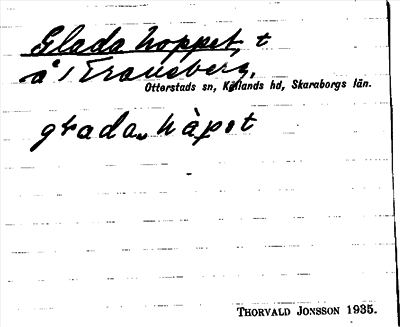 Glada hoppet, t
å / Traneberg,
Otterstads sn, Kållands hd, Skaraborgs län.
glada håpet
THORVALD JONSSON 1935.